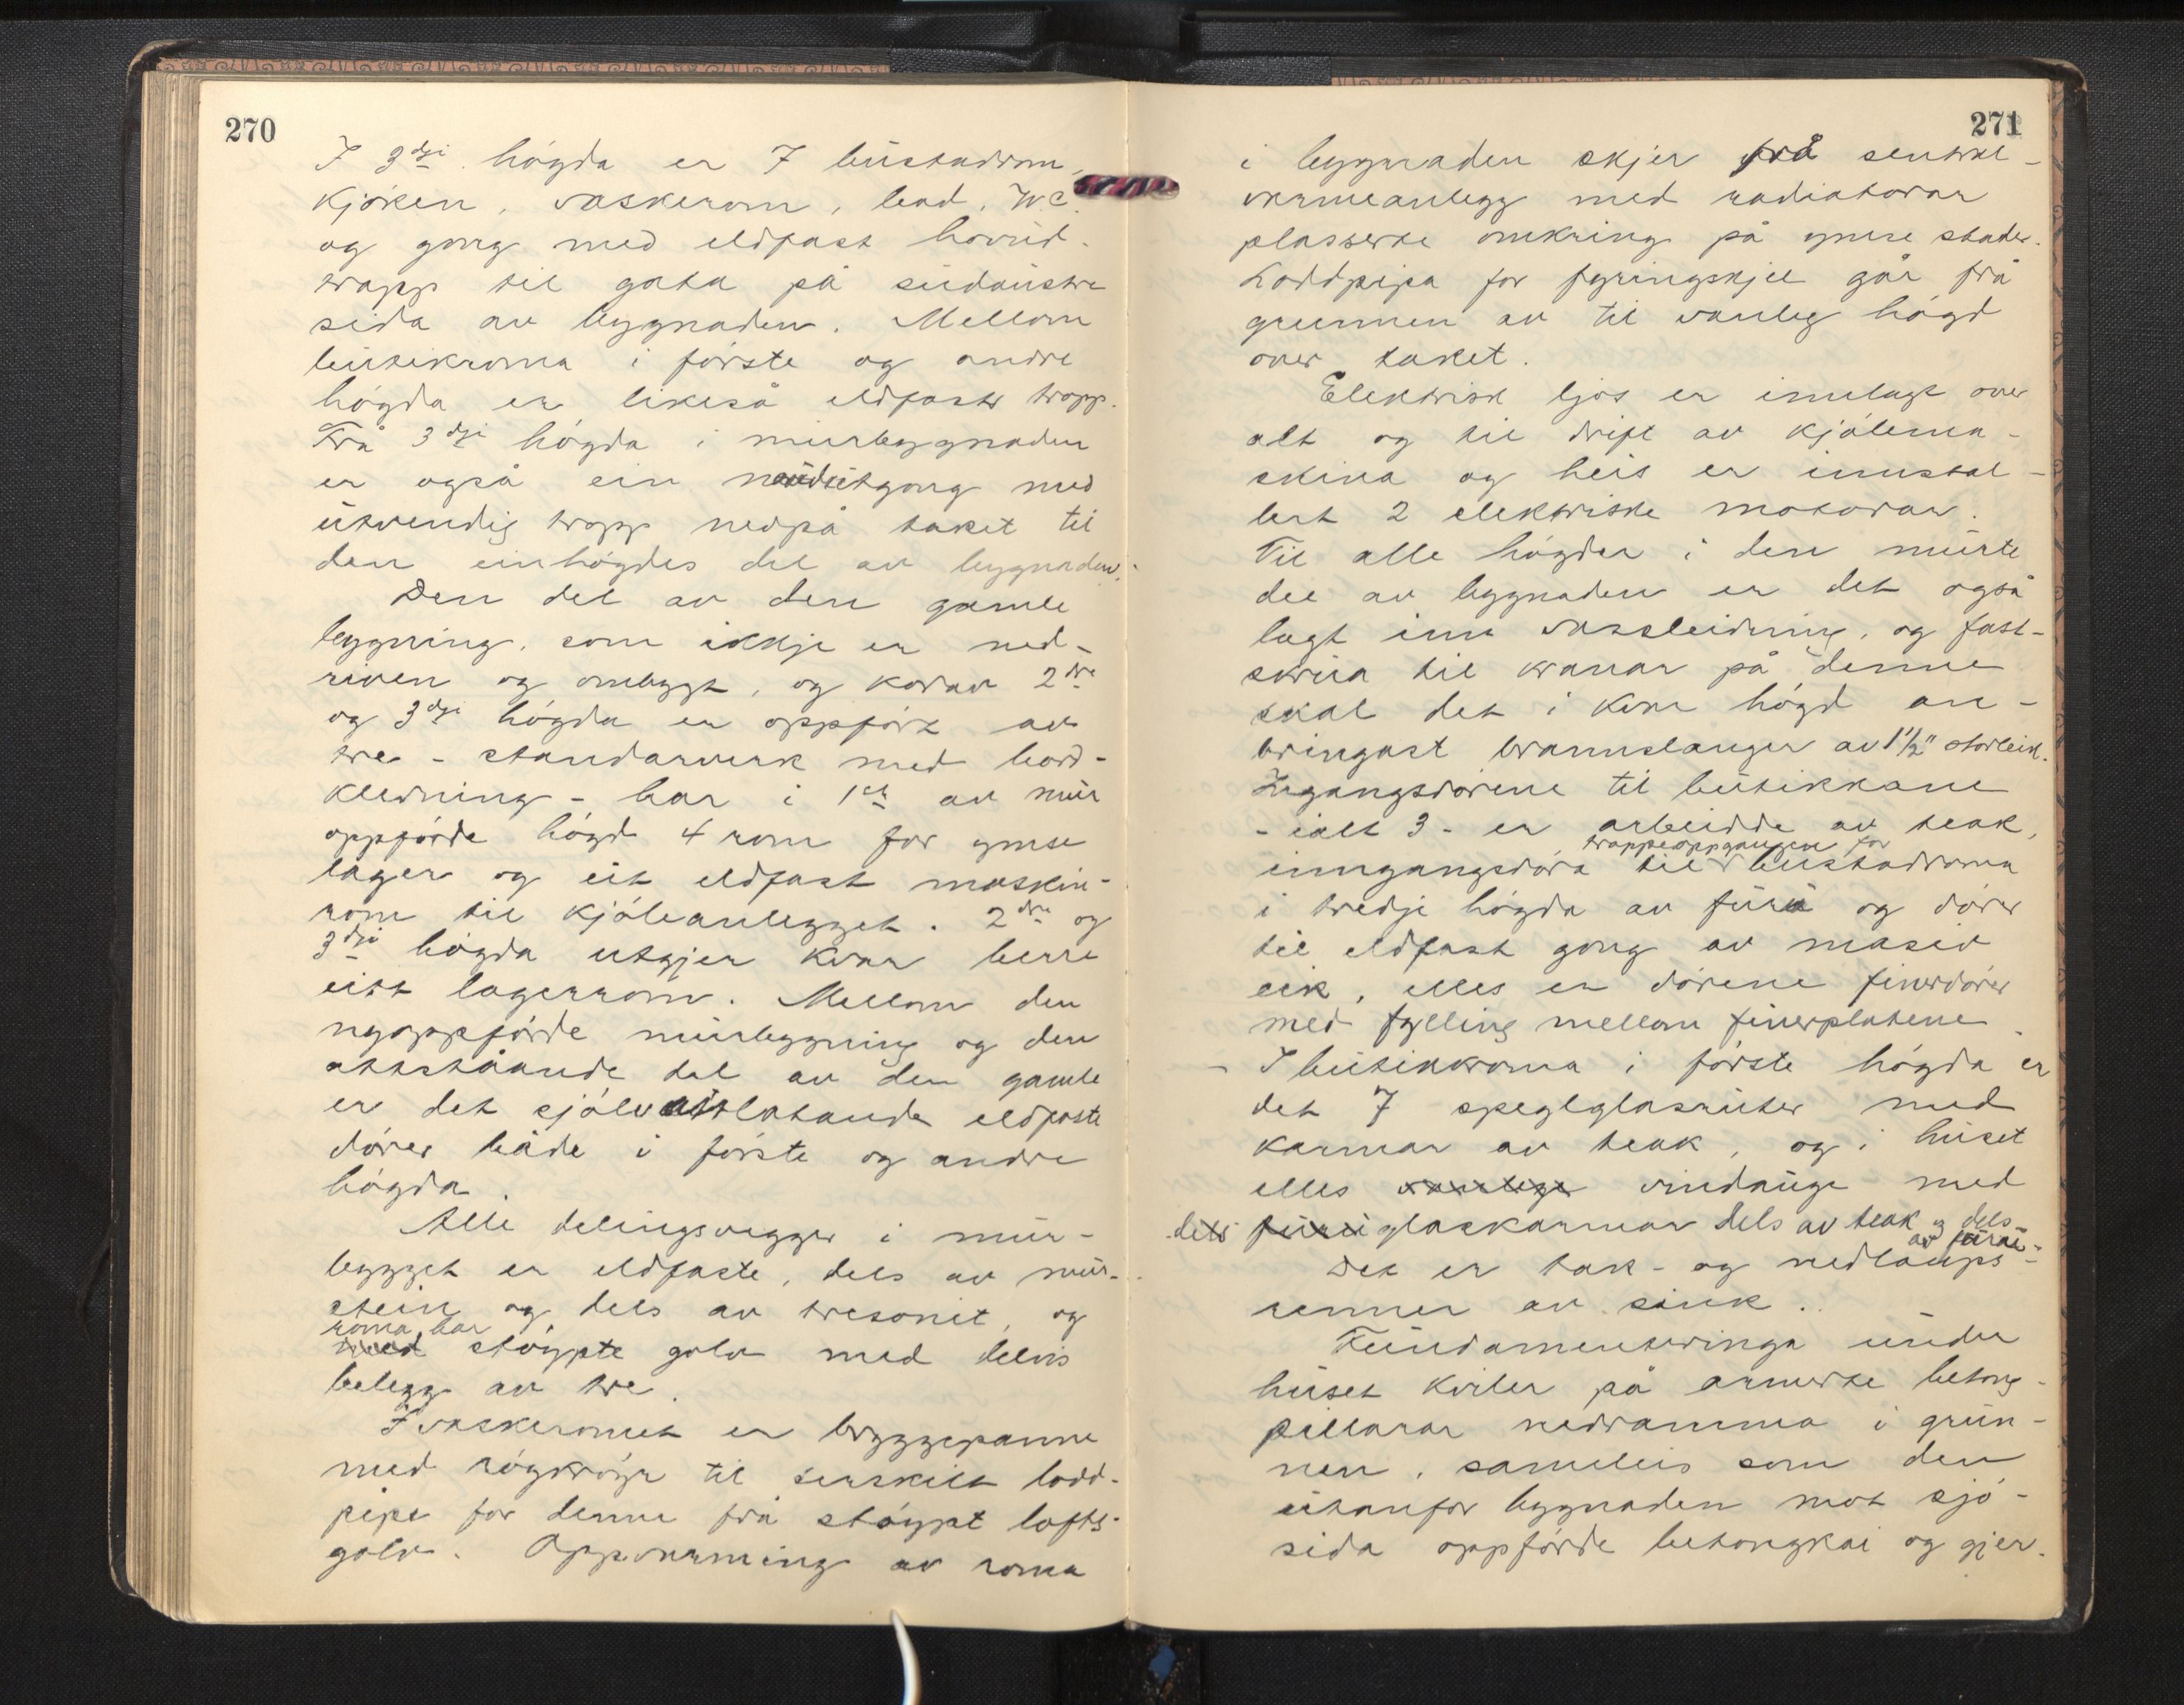 270
I 3dji högda er 7 bustadrom,
kjöken, vaskerom, bad, W.C.
og gong med eldfast hovud-
trapp til gata på sudaustre
sida av bygnaden. Mellom
butikroma i förste og andre
högda er likeså eldfast trapp.
Frå 3dji högda i murbygnaden
er også ein naudutgong med
utvendig trapp nedpå taket til
den einhögdes del av bygnaden.
Den del av den gamle
bygning, som ikkje er ned-
riven og ombygt, og korav 2dre
og 3dji högda er oppfört av
tre - standarverk med bord-
kledning - har i 1ste av mur
oppförde högd 4 rom for ymse
lager og eit eldfast maskin-
rom til kjöleanlegget. 2dre og
3dji högda utgjer kvar berre
eitt lagerrom. Mellom den
nyoppförde murbygning og den
attståande del av den gamle
er det sjölvattlatande eldfaste
dörer både i förste og andre
högda.
Alle delingsvegger i mur-
bygget er eldfaste, dels av mur-
stein og dels av tresonit, og
roma har
med stöypte golv med delvis
belegg av tre.
I vaskeromet er bryggepanne
med rögkröyr til serskilt lodd-
pipe for denne frå stöypt lofts-
golv. Oppvarming av roma
271
i bygnaden skjer frå sentral-
varmeanlegg med radiatorar
plasserte omkring på ymse stader.
Loddpipa for fyringskjel går frå
grunnen av til vanleg högd
over taket.
Elektrisk ljos er innlagt over
alt og til drift av kjölema-
skina og heis er innstal-
lert 2 elektriske motorar.
Til alle högder i den murte
del av bygnaden er det også
lagt inn vassleidning, og fast-
skrua til kranar på denne
skal det i kvar högd an-
bringast brannslanger av 1½" storleik.
Ingangsdörene til butikkane
- ialt 3 - er arbeidde av teak,
trappeoppgangen for
inngangsdöra til bustadroma
i tredje högda av furu og dörer
til eldfast gong av masiv
eik, elles er dörene finerdörer
med fylling mellom finerplatene.
- I butikkroma i förste högda er
det 7 speglglasruter med
karmar av teak, og i huset
elles vanlege vindauge med
dels furu glaskarmar dels av teak og dels
av furu.
Det er tak- og nedlaups-
renner av sink.
Fundamenteringa under
huset kviler på armerte betong-
pillarar nedramma i grun-
nen, sameleis som den
utanfor bygnaden mot sjö-
sida oppförde betongkai og gjer-